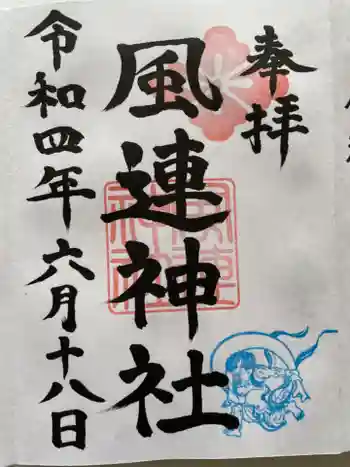 奉拝
風連神社
令和四年六月十八日
風連神社